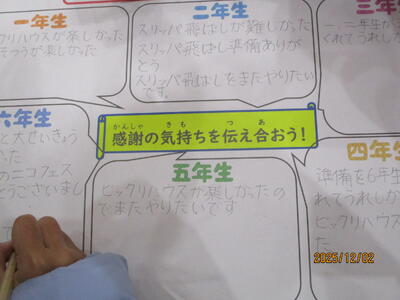 一年生
クリハウスが楽しかった
そうが楽しかった
二年生
スリッパ飛ばしが難しかった
スリッパ飛ばし準備ありが
とう
スリッパ飛ばしをまたやりたい
です。
三年生
一、二年生が
くれてうれしか
かんしゃ きも つた あ
感謝の気持ちを伝え合おう!
六年生
と大せいきょう
った
のニコフェス
とうございまし
で
五年生
ビックリハウスが楽しかったの
でまたやりたいです
四年生
準備を6年生
れてうれしか
ビックリハウスが
た
2025/12/02